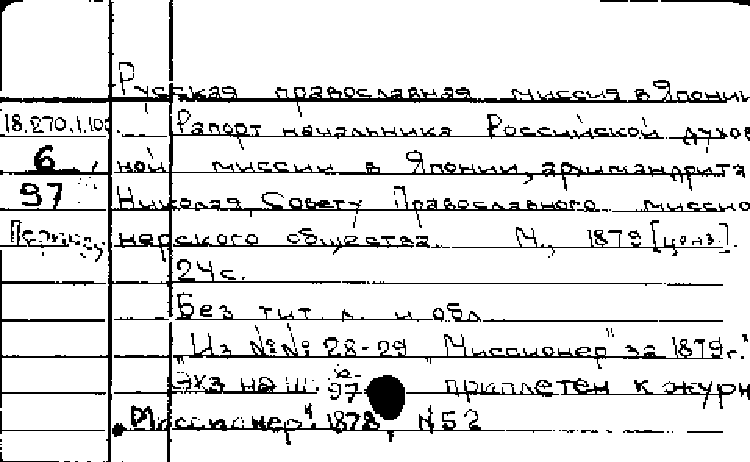 Русская православная миссия в Японии
18.270.1.10
Рапорт начальника Российской духов
6
ной миссии в Японии, архимандрита
97
Николая, Совету Православного миссио
нерского общества. М., 1879 [ценз].
24 с.
Без тит. л. и обл.
"Из №№ 28-29 "Миссионер" за 1879 г."
Экз на ш. 6 97 приплетен к журн
"Миссионер". 1878, №52